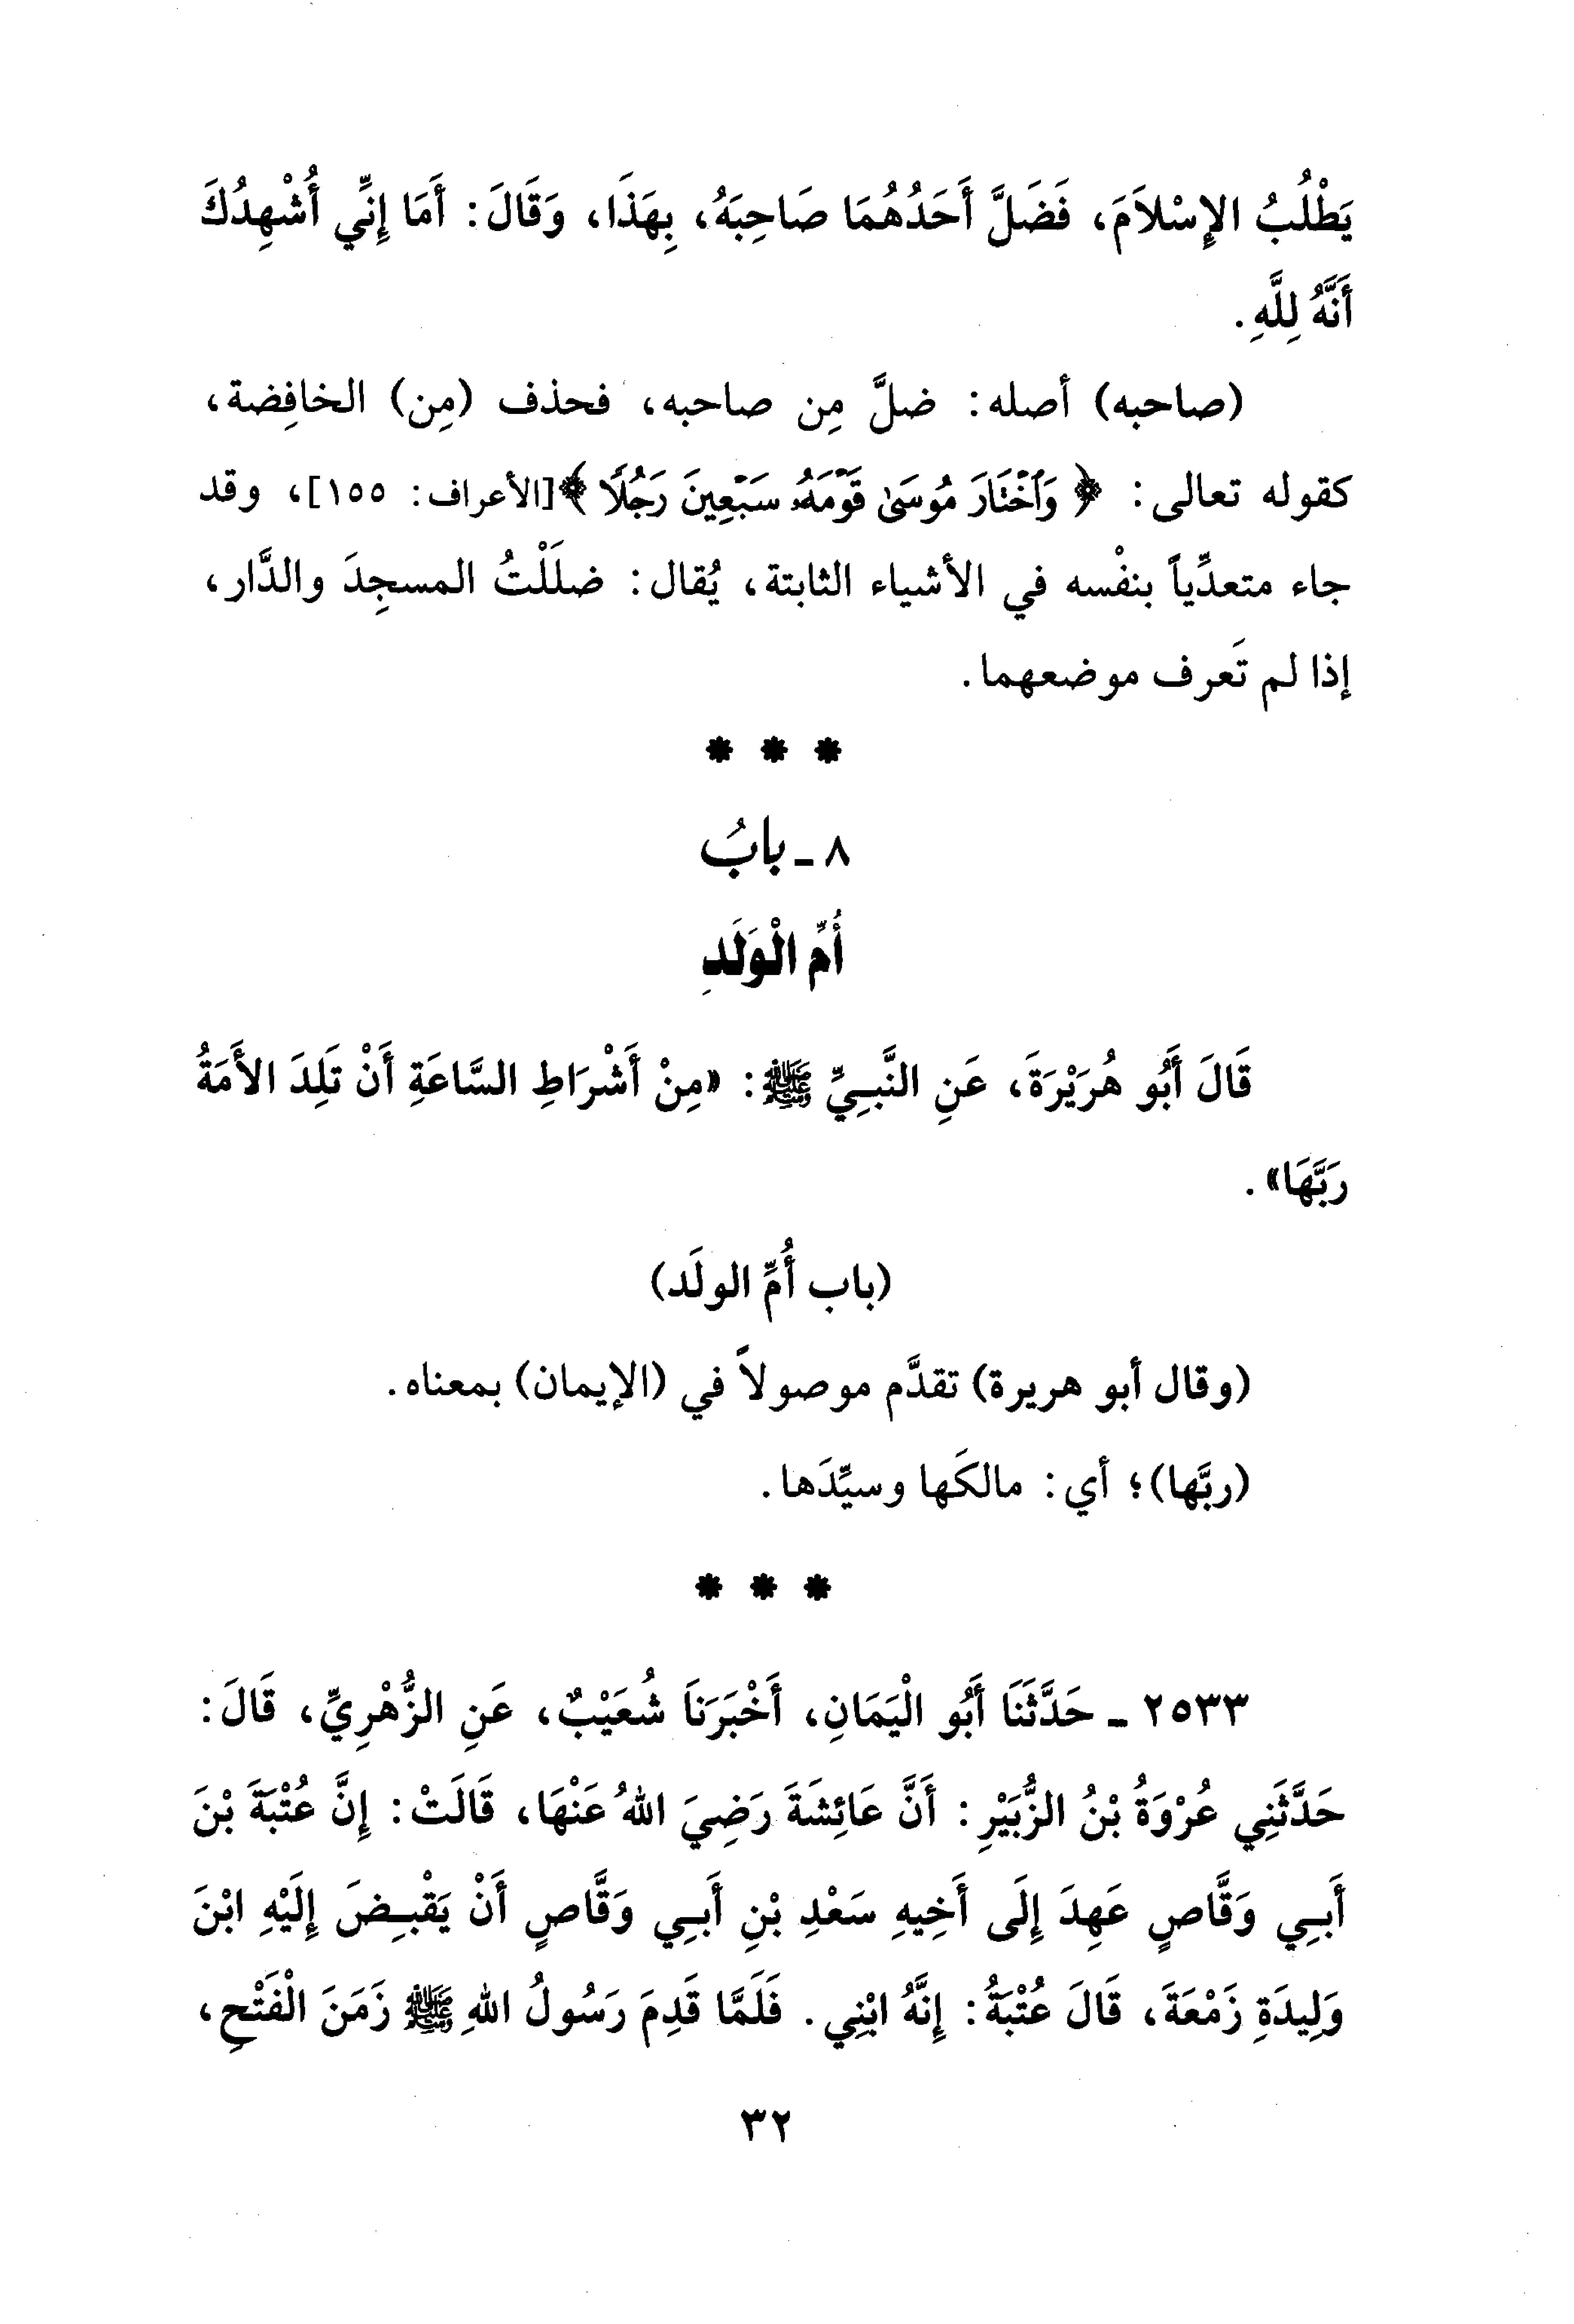 يَطْلُبُ الإِسْلاَمَ، فَضَلَّ أَحَدُهُمَا صَاحِبَهُ، بِهَذَا، وَقَالَ: أَمَا إِنِّي أُشْهِدُكَ
أَنَّهُ لِلَّهِ.
(صاحبه) أصله: ضلَّ مِن صاحبه، فحذف (مِن) الخافِضة،
كقوله تعالى: ﴿وَٱخْتَارَ مُوسَىٰ قَوْمَهُۥ سَبْعِينَ رَجُلًا﴾[الأعراف: ١٥٥]، وقد
جاء متعدِّياً بنفْسه في الأشياء الثابتة، يُقال: ضلَلْتُ المسجِدَ والدَّار،
إذا لم تَعرف موضعهما.
* * *
٨ - بابُ
أُمِّ الْوَلَدِ
قَالَ أَبُو هُرَيْرَةَ، عَنِ النَّبِيِّ ﷺ: «مِنْ أَشْرَاطِ السَّاعَةِ أَنْ تَلِدَ الأَمَةُ
رَبَّهَا».
(باب أُمِّ الولَد)
(وقال أبو هريرة) تقدَّم موصولاً في (الإيمان) بمعناه.
(ربَّها)؛ أي: مالكَها وسيِّدَها.
* * *
٢٥٣٣ - حَدَّثَنَا أَبُو الْيَمَانِ، أَخْبَرَنَا شُعَيْبٌ، عَنِ الزُّهْرِيِّ، قَالَ:
حَدَّثَنِي عُرْوَةُ بْنُ الزُّبَيْرِ: أَنَّ عَائِشَةَ رَضِيَ اللهُ عَنْهَا، قَالَتْ: إِنَّ عُتْبَةَ بْنَ
أَبِي وَقَّاصٍ عَهِدَ إِلَى أَخِيهِ سَعْدِ بْنِ أَبِي وَقَّاصٍ أَنْ يَقْبِضَ إِلَيْهِ ابْنَ
وَلِيدَةِ زَمْعَةَ، قَالَ عُتْبَةُ: إِنَّهُ ابْنِي. فَلَمَّا قَدِمَ رَسُولُ اللهِ ﷺ زَمَنَ الْفَتْحِ،
٣٢